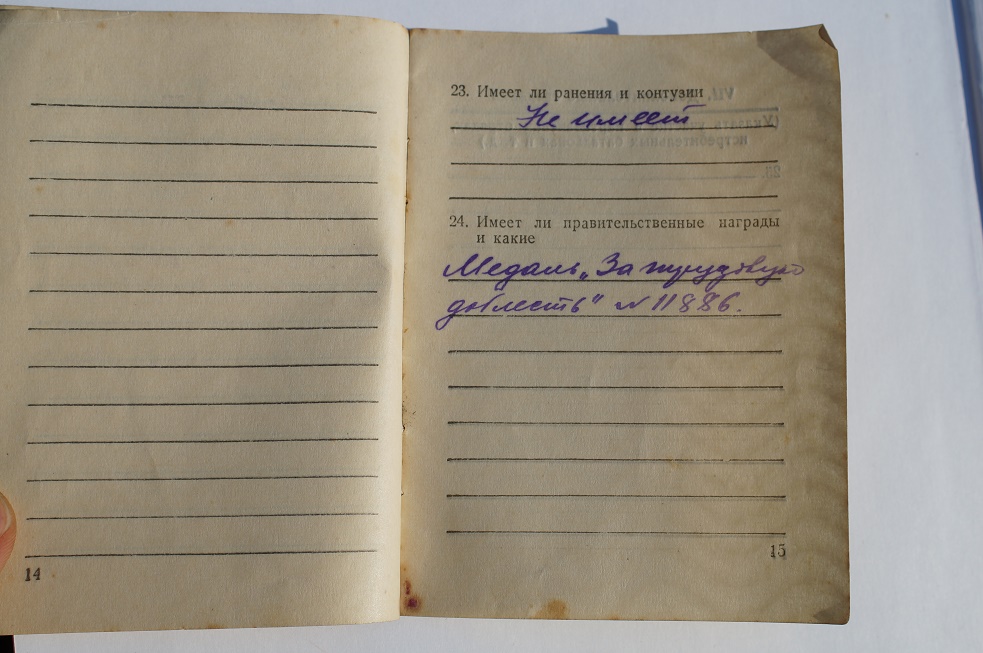 14
23. Имеет ли ранения и контузии
Не имеет
24. Имеет ли правительственные награды
и какие
Медаль „За трудовую
доблесть" N 11886.
15